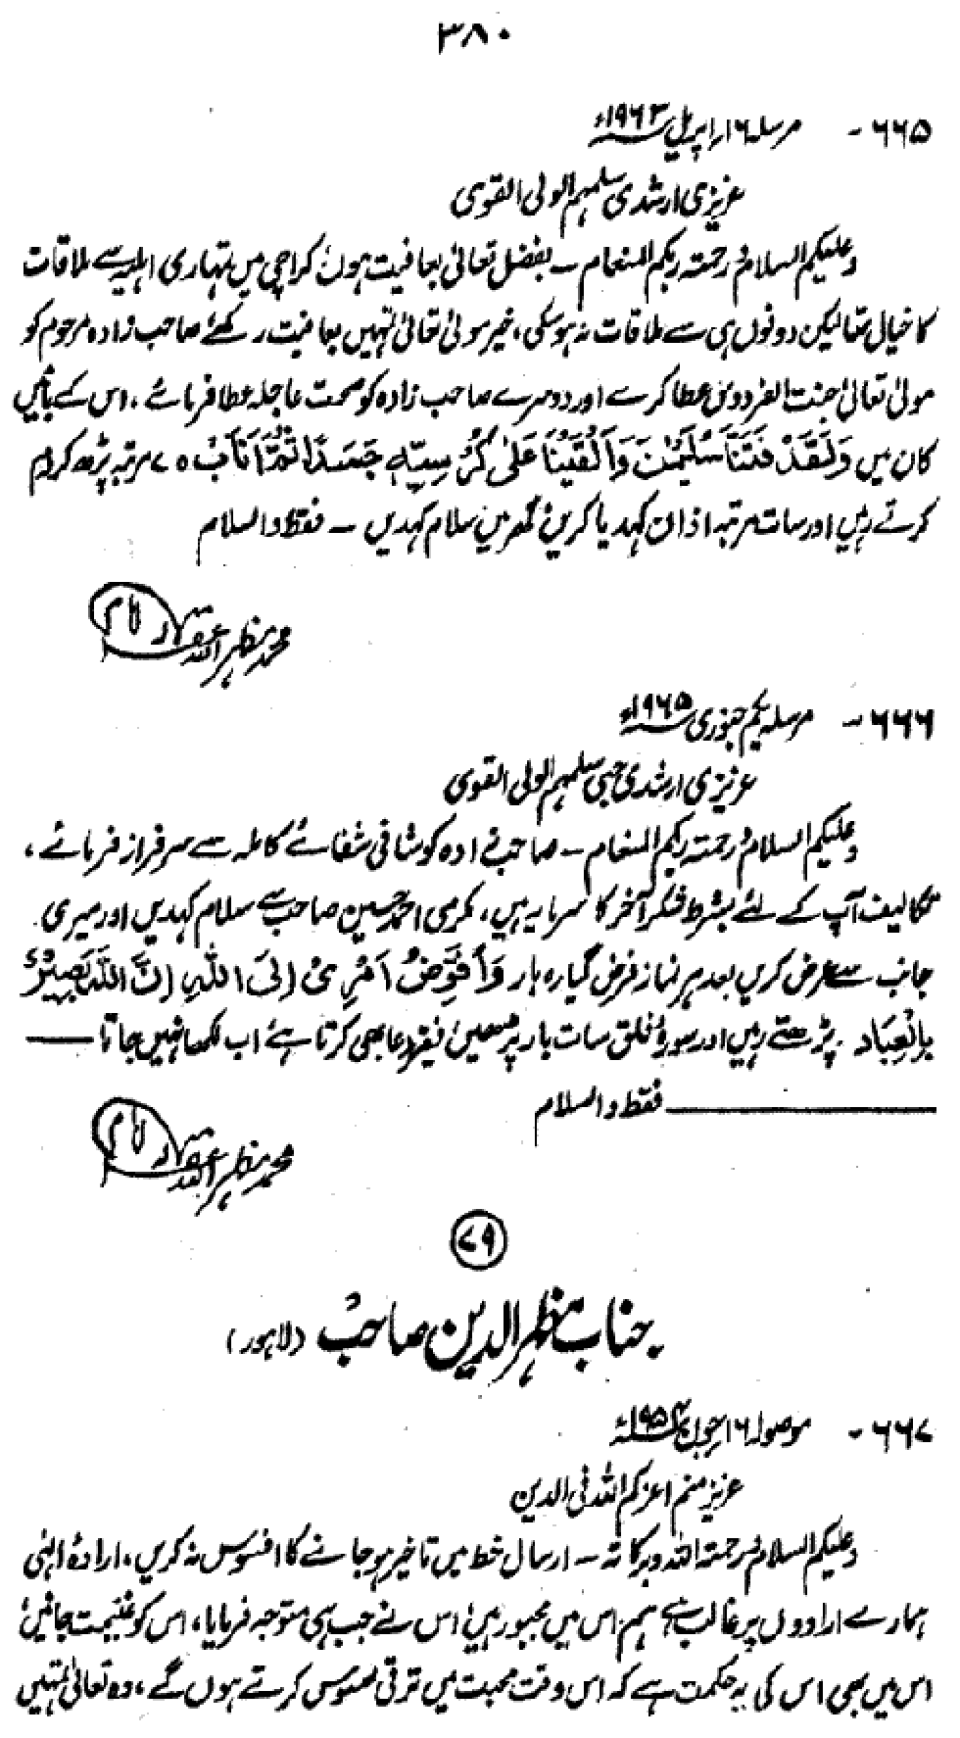 ۳۸۰
۶۶۵ - مرسلہ ۱۶ اپریل ۱۹۶۳ء
عزیزی ارشدی سلمہم الولی القوی
وعلیکم السلام ورحمتہ ربکم المنعام - بفضل تعالیٰ بعافیت ہوں، کراچی میں تمہاری اہلیہ سے ملاقات
کا خیال تھا لیکن دونوں ہی سے ملاقات نہ ہو سکی، خیر مولیٰ تعالیٰ تمہیں بعافیت رکھے صاحب زادہ مرحوم کو
مولیٰ تعالیٰ جنت الفردوس عطا کرے اور دوسرے صاحب زادہ کو صحت عاجلہ عطا فرمائے، اس کے بائیں
کان میں وَلَقَدْ فَتَنَّا سُلَيْمٰنَ وَاَلْقَيْنَا عَلىٰ كُرْسِيِّهٖ جَسَدًا ثُمَّ اَنَابَ ۷۰ مرتبہ پڑھ کر دم
کرتے رہیں اور سات مرتبہ اذان کہہ دیا کریں، گھر میں سلام کہدیں - فقط والسلام
محمد مظہر اللہ
۶۶۶ - مرسلہ یکم جنوری ۱۹۶۵ء
عزیزی ارشدی حبی سلمہم الولی القوی
وعلیکم السلام ورحمتہ ربکم المنعام - صاحبزادہ کو شافی شفائے کاملہ سے سرفراز فرمائے،
تکالیف آپ کے لئے بشرط شکر آخر کا سرمایہ ہیں، مکرمی احمد حسین صاحب سے سلام کہدیں اور میری
جانب سے عرض کریں بعد ہر نماز فرض گیارہ بار وَاُفَوِّضُ اَمْرِیْ اِلَی اللّٰہِ اِنَّ اللّٰہَ بَصِیْرٌ
بِالْعِبَاد پڑھتے رہیں اور سورۂ فلق سات بار پڑھیں، فقیر دعا بھی کرتا ہے، اب لکھا نہیں جاتا ——
—— فقط والسلام
محمد مظہر اللہ
۷۹
جناب مظہر الدین صاحب (لاہور)
۶۶۷ - موصولہ ۱۶ جون ۱۹۵۴ء
عزیز منم اعزکم اللہ فی الدین
وعلیکم السلام ورحمتہ اللہ وبرکاتہ - ارسال خط میں تاخیر ہو جانے کا افسوس نہ کریں، ارادۂ الٰہی
ہمارے ارادوں پر غالب ہے ہم اس میں مجبور ہیں، اس نے جب ہی متوجہ فرمایا، اس کو غنیمت جانیں،
اس میں بھی اس کی یہ حکمت ہے کہ اس وقت محبت میں ترقی محسوس کرتے ہوں گے، وہ تعالیٰ تمہیں